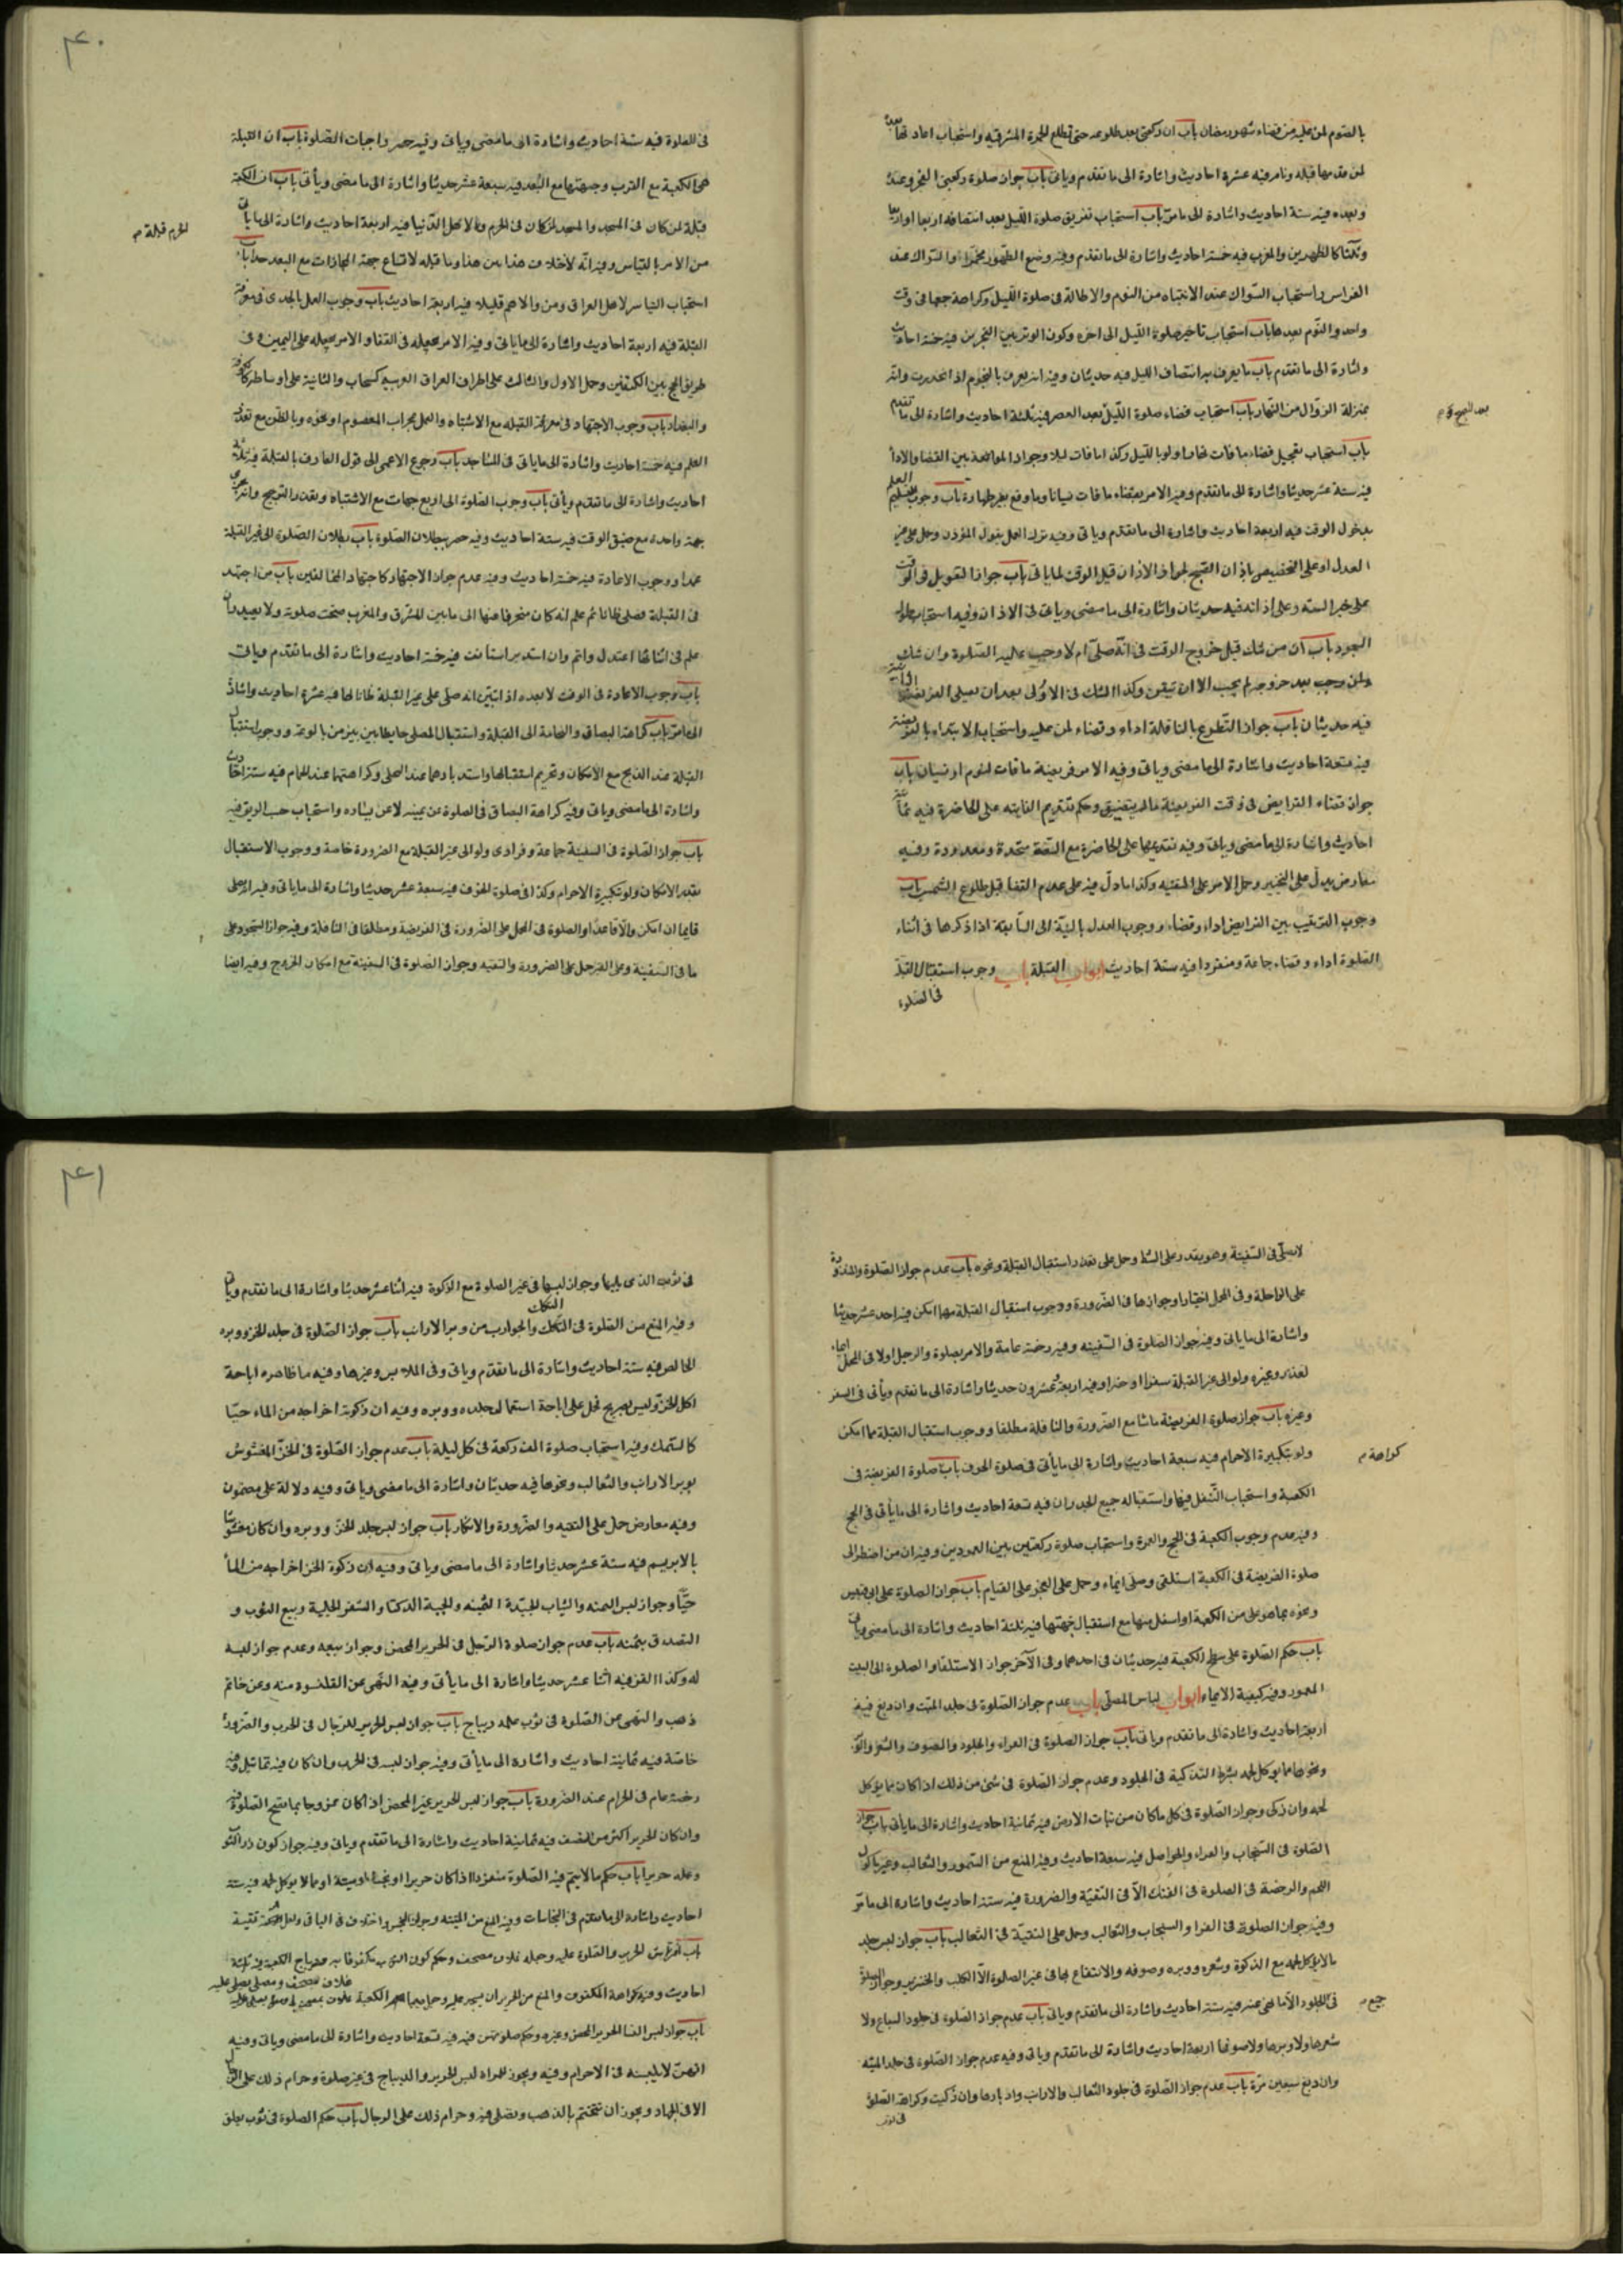 بالصوم لمن عليه من قضاء شهر رمضان باب ان ركعتى بعد طلوعه حتى تطلع الحمرة المشرقيه واستحباب اعادتها بعده
لمن قدمها قبله ونام فيه عشرة احاديث واشارة الى ما تقدم وياتى باب جواز صلوة ركعتى الفجر وعنده
وبعده فيه ستة احاديث واشارة الى ما مر باب استحباب تفريق صلوة الليل بعد انتصافه اربعا اواربعا
وثلثا كالظهرين والمغرب فيه خمسة احاديث واشارة الى ما تقدم وفيه وضع الطهور مخمرا والسواك عند
الفراس واستحباب السواك عند الانتباه من النوم والاطالة فى صلوة الليل وكراهة جمعها فى وقت
واحد والنوم بعدها باب استحباب تاخير صلوة الليل الى اخره وكون الوتر بين الفجرين فيه خمسة احاديث
واشارة الى ما تقدم باب ما يعرف به انتصاف الليل فيه حديثان وفيه انه يعرف بالنجوم اذا انحدرت وانه
بمنزلة الزوال من النهار باب استحباب قضاء صلوة الليل بعد العصر فيه ثلثة احاديث واشارة الى ما تقدم
باب استحباب تعجيل قضاء ما فات نهارا ولو بالليل وكذا ما فات ليلا وجواز الموافقة بين القضا والادأ
فيه ستة عشر حديثا واشارة الى ما تقدم وفيه الامر بقضاء ما فات نسيانا وما وقع بغير طهارة باب وجوب العلم
بدخول الوقت فيه اربعة احاديث واشارة الى ما تقدم وياتى وفيه ترك العمل بقول المؤذن وحمل على غير
العدل او على التخصيص باذان الصبح لجواز الاذان قبل الوقت لما ياتى باب جواز التعويل فى الوقت
على خبر الثقه وعلى اذانه فيه حديثان واشارة الى ما مضى وياتى فى الاذان وفيه استحباب طول
السجود باب ان من شك قبل خروج الوقت فى انه صلى ام لا وجب عليه الصلوة وان شك
بعد خروجه لم يجب الا ان تيقن وكذا الشك فى الاولى بعد ان يصلى الفريضة
فيه حديثان باب جواز التطوع بالنافلة اداء وقضاء لمن عليه واستحباب الابتداء بالفريضة
فيه تسعة احاديث واشارة الى ما مضى وياتى وفيه الامر فريضة ما فات لنوم او نسيان باب
جواز قضاء الفرايض فى وقت الفريضة ما لم يتضيق وحكم تقديم الفايته على الحاضرة فيه ثمانية
احاديث واشارة الى ما مضى وياتى وفيه تقديمها على الحاضرة مع السعة متحدة ومعدودة وفيه
معارض يدل على التخيير وحمل الامر على التقيه وكذا ما دل فيه على عدم القضا قبل طلوع الشمس باب
وجوب الترتيب بين الفرايض اداء وقضاء ووجوب العدول بالنية الى السابقة اذا ذكرها فى اثناء
الصلوة اداء وقضاء جماعة ومنفردا فيه ستة احاديث ابواب القبلة باب وجوب استقبال القبلة
فى الصلوة
۴۰
فى الصلوة فيه ستة احاديث واشارة الى ما مضى وياتى وفيه حصر واجبات الصلوة باب ان القبلة
هى الكعبة مع القرب وجهتها مع البعد فيه سبعة عشر حديثا واشارة الى ما مضى ويأتى باب ان الكعبة
قبلة لمن كان فى المسجد والمسجد لمن كان فى الحرم والا لاهل الدنيا فيه اربعة احاديث واشارة الى ما ياتى
الحرم قبلة م
من الامر بالتياسر وفيه انه لا خلاف هذا بين هذا وما قبله لاتساع جهة المحاذات مع البعد جدا باب
استحباب التياسر لاهل العراق ومن والاهم قليلا فيه اربعة احاديث باب وجوب العمل بالجدى فى معرفة
القبلة فيه اربعة احاديث واشارة الى ما ياتى وفيه الامر بجعله فى القفا والامر بجعله على اليمين فى
طريق الحج بين الكتفين وحمل الاول والثالث على اطراف العراق الغربية كسنجاب والثانية على اوساطه كالكوفة
والبغداد باب وجوب الاجتهاد فى معرفة القبله مع الاشتباه والعمل بمحراب المعصوم او نحوه وبالظن مع تعذر
العلم فيه خمسة احاديث واشارة الى ما ياتى فى المساجد باب رجوع الاعمى الى قول العارف بالقبلة فيه ثلثة
احاديث واشارة الى ما تقدم ويأتى باب وجوب الصلوة الى اربع جهات مع الاشتباه وتعذر الترجيح وانه يجزى
جهة واحدة مع ضيق الوقت فيه ستة احاديث وفيه حصر ببطلان الصلوة باب بطلان الصلوة الى غير القبلة
عمدا ووجوب الاعادة فيه خمسة احاديث وفيه عدم جواز الاجتهاد كاجتهاد المخالفين باب من اجتهد
فى القبلة فصلى ظانا ثم علم انه كان منحرفا عنها الى ما بين المشرق والمغرب صحت صلوته ولا يعيد وان
علم فى اثنائها اعتدل واتم وان استدبر استانف فيه خمسة احاديث واشارة الى ما تقدم وياتى
باب وجوب الاعادة فى الوقت لا بعده اذا تبين انه صلى على غير القبلة ظانا لها فيه عشرة احاديث واشارة
الى ما مر باب كراهة البصاق والنخامة الى القبلة واستقبال المصلى حايطا ينز من بالوعة ووجوب استقبال
القبلة عند الذبح مع الامكان وتحريم استقبالها واستدبارها عند التخلى وكراهتها عند الجماع فيه ستة احاديث
واشارة الى ما مضى وياتى وفيه كراهة البصاق فى الصلوة عن يمينه لا عن يساره واستحباب حبس الريق فيه
باب جواز الصلوة فى السفينة جماعة وفرادى ولو الى غير القبلة مع الضرورة خاصة ووجوب الاستقبال
بقدر الامكان ولو بتكبيرة الاحرام وكذا فى صلوة الخوف فيه سبعة عشر حديثا واشارة الى ما ياتى وفيه انه يصلى
قايما ان امكن والا قاعدا والصلوة فى المحمل على الضرورة فى الفريضة ومطلقا فى النافلة وفيه جواز السجود على
ما فى السفينة وعلى القير حمل على الضرورة والتقيه وجواز الصلوة فى السفينة مع امكان الخروج وفيه ايضا
لا يصلى فى السفينة وهو يقدر على الشط وحمل على تعذر استقبال القبلة ونحوه باب عدم جواز الصلوة والمنذورة
على الراحلة وفى المحمل اختيارا وجوازها فى الضرورة ووجوب استقبال القبلة مهما امكن فيه احد عشر حديثا
واشارة الى ما ياتى وفيه جواز الصلوة فى السفينه وفيه رخصة عامة والامر بصلوة والرجل اولا فى المحمل ايماء
لعذر وغيره ولو الى غير القبلة سفرا او حضرا وفيه اربعة وعشرون حديثا واشارة الى ما تقدم ويأتى فى السفر
وغيره باب جواز صلوة الفريضة ماشيا مع الضرورة والنافلة مطلقا ووجوب استقبال القبلة مما امكن
ولو بتكبيرة الاحرام فيه سبعة احاديث واشارة الى ما يأتى فى صلوة الخوف باب صلوة الفريضة فى
كراهة م
الكعبة واستحباب التنفل فيها واستقباله جميع الجدران فيه تسعة احاديث واشارة الى ما يأتى فى الحج
وفيه عدم وجوب الكعبة فى الحج والعمرة واستحباب صلوة ركعتين بين العمودين وفيه ان من اضطر الى
صلوة الفريضة فى الكعبة استلقى وصلى ايماء وحمل على العجز على القيام باب جواز الصلوة على ابى قبيس
ونحوه مما هو على من الكعبة او اسفل منها مع استقبال جهتها فيه ثلثة احاديث واشارة الى ما مضى وياتى
باب حكم الصلوة على سطح الكعبة فيه حديثان فى احدهما وفى الآخر جواز الاستلقا والصلوة الى البيت
المعمور وفيه كيفية الايماء ابواب لباس المصلى باب عدم جواز الصلوة فى جلد الميتة وان دبغ فيه
اربعة احاديث واشارة الى ما تقدم وياتى باب جواز الصلوة فى الفراء والجلود والصوف والشعر والوبر
ونحوها مما يوكل لحمه بشرط التذكية فى الجلود وعدم جواز الصلوة فى شئ من ذلك اذا كان مما يؤكل
لحمه وان ذكى وجواز الصلوة فى كل ما كان من نبات الارض فيه ثمانية احاديث واشارة الى ما يأتى باب جواز
الصلوة فى السنجاب والفراء والحواصل فيه سبعة احاديث وفيه المنع من السمور والثعالب وغير ماكول
اللحم والرخصة فى الصلوة فى الفنك الا فى التقيّة والضرورة فيه ستة احاديث واشارة الى ما مر
وفيه جواز الصلوة فى الفرا والسنجاب والثعالب وحمل على التقيّة فى الثعالب باب جواز لبس جلد
ما لا يؤكل لحمه مع الذكوة وشعره ووبره وصوفه والانتفاع بها فى غير الصلوة الا الكلب والخنزير وجواز الصلوة
فى الجلود الا ما نهى عنه فيه ستة احاديث واشارة الى ما تقدم وياتى باب عدم جواز الصلوة فى جلود السباع ولا
جميع م
شعرها ولا وبرها ولا صوفها اربعة احاديث واشارة الى ما تقدم وياتى وفيه عدم جواز الصلوة فى جلد الميتة
وان دبغ سبعين مرّة باب عدم جواز الصلوة فى جلود الثعالب والارانب واوبارها وان ذكيت وكراهة الصلوة
فى ثوب
۴۱
فى ثوب الذى يليها وجواز لبسها فى غير الصلوة مع الذكوة فيه اثنا عشر حديثا واشارة الى ما تقدم وياتى
وفيه المنع من الصلوة فى التكك والجوارب من وبر الارانب باب جواز الصلوة فى جلد الخز ووبره
الخالص فيه ستة احاديث واشارة الى ما تقدم وياتى وفى الملابس وغيرها وفيه ما ظاهره اباحة
اكل الخز وليس بصريح فحمل على اباحة استعمال جلده ووبره وفيه ان ذكوته اخراجه من الماء حيّا
كالسمك وفيه استحباب صلوة الف ركعة فى كل ليلة باب عدم جواز الصلوة فى الخزّ المغشوش
بوبر الارانب والثعالب ونحوها فيه حديثان واشارة الى ما مضى وياتى وفيه دلالة على مضمون
وفيه معارض حمل على التقيه والضرورة والانكار باب جواز لبس جلد الخز ووبره وان كان مغشوشا
بالابريسم فيه ستة عشر حديثا واشارة الى ما مضى وياتى وفيه ان ذكوة الخز اخراجه من المأ
حيّا وجواز لبس اليمنه والثياب الجيّدة الثمينه والجبة الدكنا والشعر الحلية وبيع الثوب و
التصدق بثمنه باب عدم جواز صلوة الرجل فى الحرير المحض وجواز بيعه وعدم جواز لبسه
له وكذا القز فيه اثنا عشر حديثا واشارة الى ما يأتى وفيه النهى عن القلنسوه منه وعن خاتم
ذهب والنهى عن الصلوة فى ثوب علمه ديباج باب جواز لبس الحرير للرجال فى الحرب والضرورة
خاصّة فيه ثمانية احاديث واشارة الى ما يأتى وفيه جواز لبسه فى الحرب وان كان فيه تماثيل وفيه
رخصة عام فى الحرام عند الضرورة باب جواز لبس الحرير غير المحض اذا كان ممزوجا بما تصح الصلوة فيه
وان كان الحرير اكثر من النصف فيه ثمانية احاديث واشارة الى ما تقدم وياتى وفيه جواز كون زر الثوب
وعلمه حريرا باب حكم ما لا يتم فيه الصلوة منفردا اذا كان حريرا او نجسا او ميتة او مما لا يوكل لحمه فيه ستة
احاديث واشارة الى ما تقدم فى النجاسات وفيه المنع من الميتة وجواز النجس واختلاف فى الباقى
باب افتراش الحرير والصلوة عليه وجعله غلاف مصحف وحكم كون الثوب مكفوفا به وديباج الكعبة فيه ثلثة
احاديث وفيه كراهة المكفوف والمنع من الحرير
باب جواز لبس النسا الحرير المحض وغيره وحكم صلوتهن فيه فيه تسعة احاديث واشارة الى ما مضى وياتى وفيه
انهنّ لا يلبسنه فى الاحرام وفيه ويجوز للمراه لبس الحرير والديباج فى غير صلوة وحرام ذلك على الرجال
الا فى الجهاد ويجوز ان تتختم بالذهب وتصلى فيه وحرام ذلك على الرجال باب حكم الصلوة فى ثوب يعلق